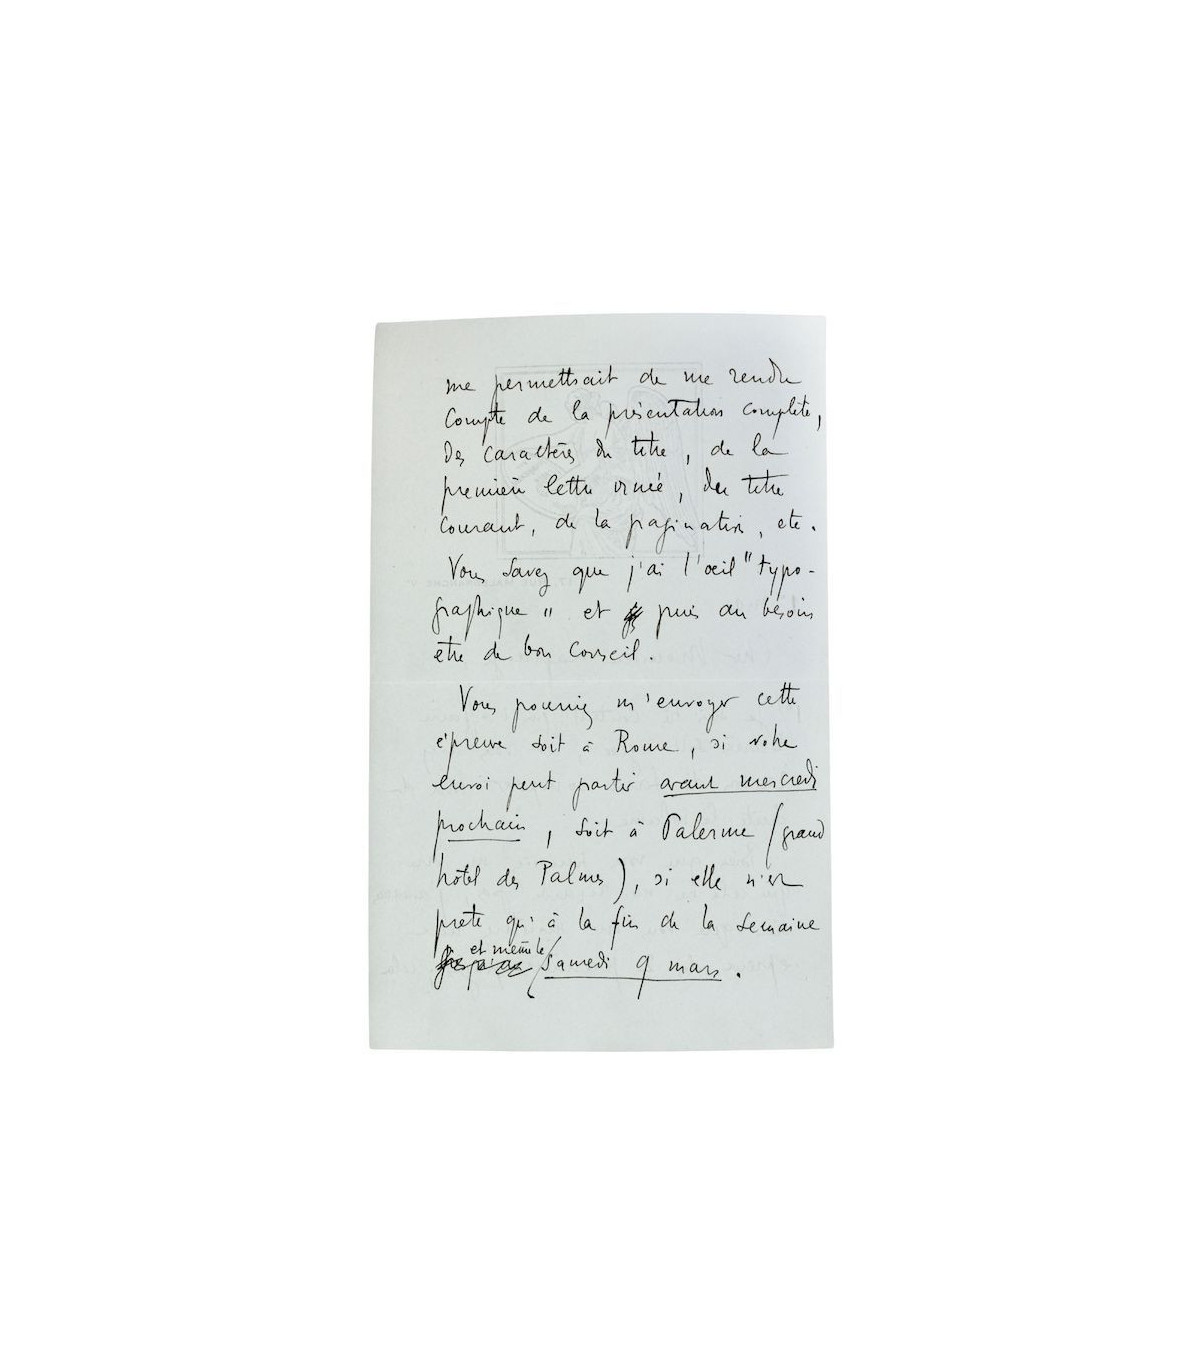 me permettrait de me rendre
Compte de la présentation complète,
Des caractères du titre, de la
première lettre ornée, du titre
courant, de la pagination, etc.
Vous savez que j'ai l'oeil "typo-
graphique" et puis au besoin
être de bon conseil.
Vous pourriez m'envoyer cette
épreuve soit à Rome, si votre
envoi peut partir avant mercredi
prochain, soit à Palerme (grand
hôtel des Palmes), si elle n'est
prête qu'à la fin de la semaine
et même le
samedi 9 mars.